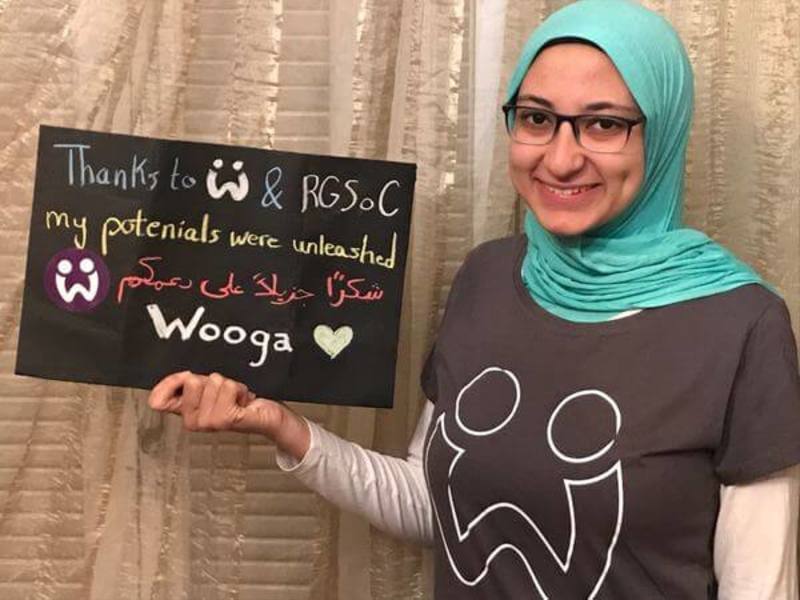 Thanks to & RGSoC
my potenials were unleashed
شكرًا جزيلاً على دعمكم
Wooga